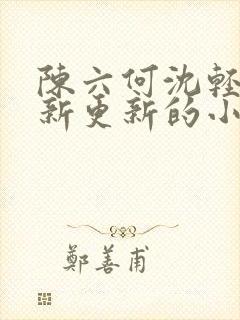 陳六何沈輕
新更新的小
鄭善甫